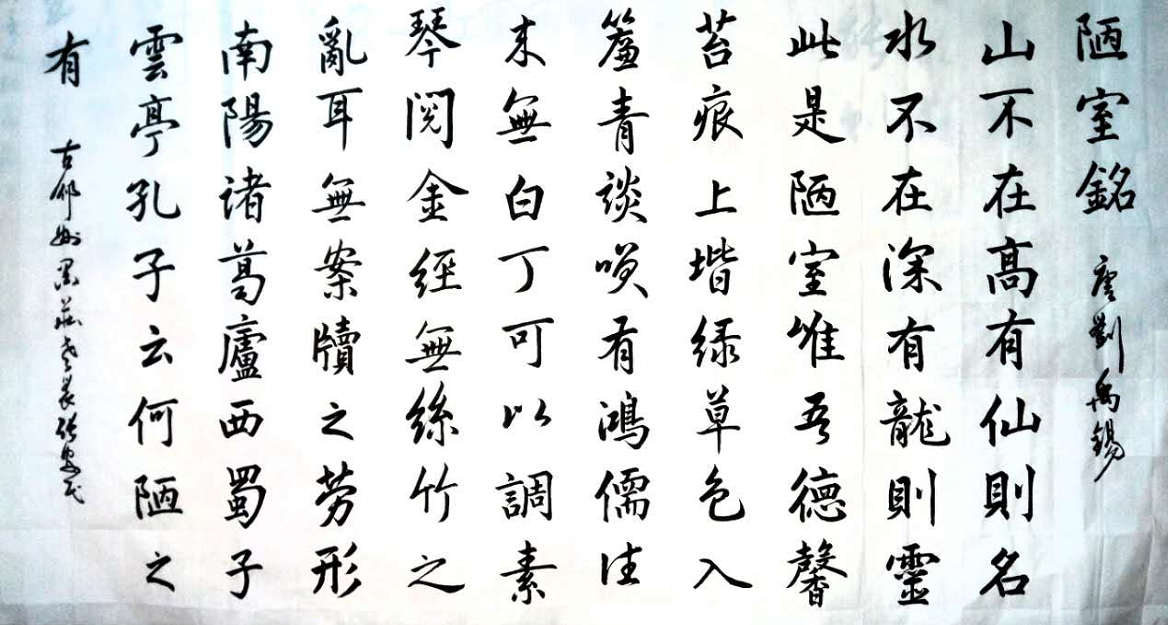 陋室銘 唐劉禹錫
山不在高有仙則名
水不在深有龍則靈
此是陋室惟吾德馨
苔痕上堦緑草色入
簾青談咲有鴻儒往
来無白丁可以調素
琴閱金經無絲竹之
亂耳無案牘之勞形
南陽諸葛廬西蜀子
雲亭孔子云何陋之
有 古邠州墨莊老農張